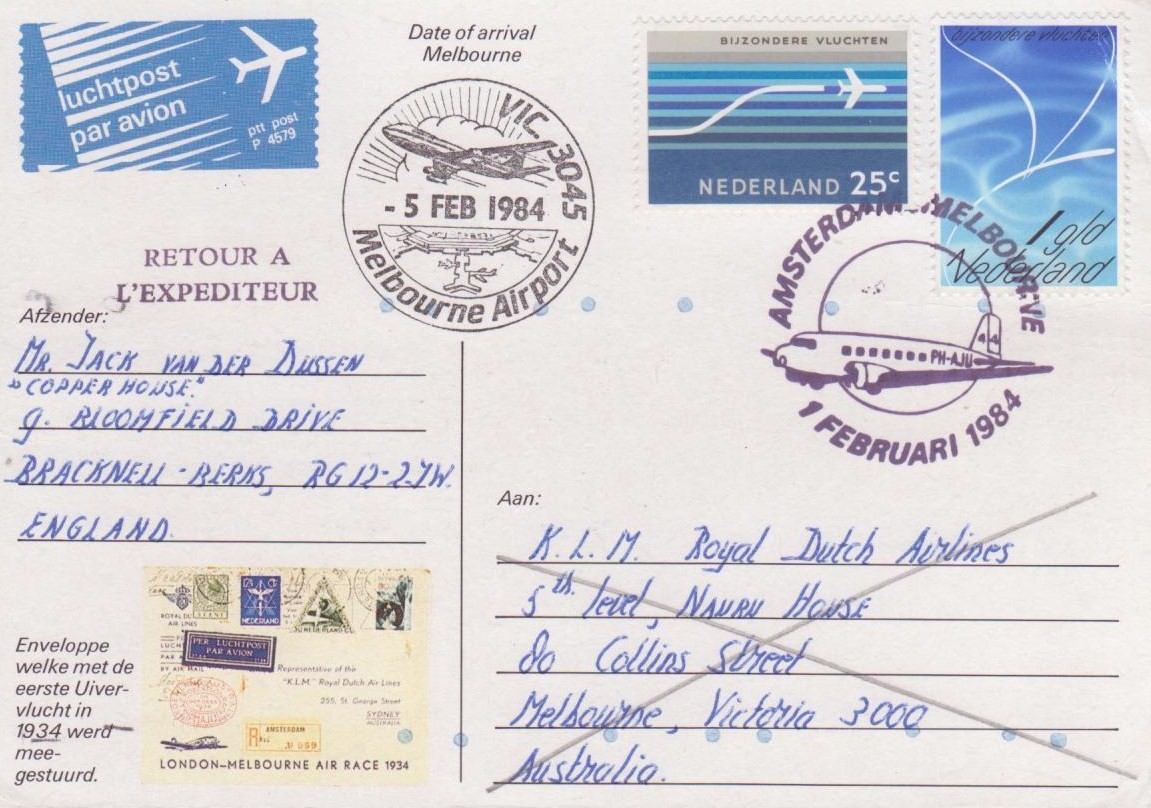 luchtpost
par avion
ptt post
P 4579
Date of arrival
Melbourne
VIC. 3045
- 5 FEB 1984
Melbourne Airport
BIJZONDERE VLUCHTEN
NEDERLAND 25c
bijzondere vluchten
1 gld
Nederland
AMSTERDAM-MELBOURNE
PH-AJU
44
1 FEBRUARI 1984
RETOUR A
L'EXPEDITEUR
Afzender:
MR. JACK VAN DER DUSSEN
"COPPER HOUSE."
9. BLOOMFIELD DRIVE
BRACKNELL - BERKS, RG 12-2JW.
ENGLAND.
Aan:
K.L.M. Royal Dutch Airlines
5th level, NAURU HOUSE
80 Collins Street
Melbourne, Victoria 3000
Australia.
Enveloppe
welke met de
eerste Uiver-
vlucht in
1934 werd
mee-
gestuurd.
ROYAL DU
AIR LINES
12½ CT
NEDERLAND
PER LUCHTPOST
PAR AVION
BY AIR MAIL
Representative of the
"K.L.M." Royal Dutch Air Lines
255, St. George Street
SYDNEY
AUSTRALIA
R
AMSTERDAM
No 059
LONDON-MELBOURNE AIR RACE 1934